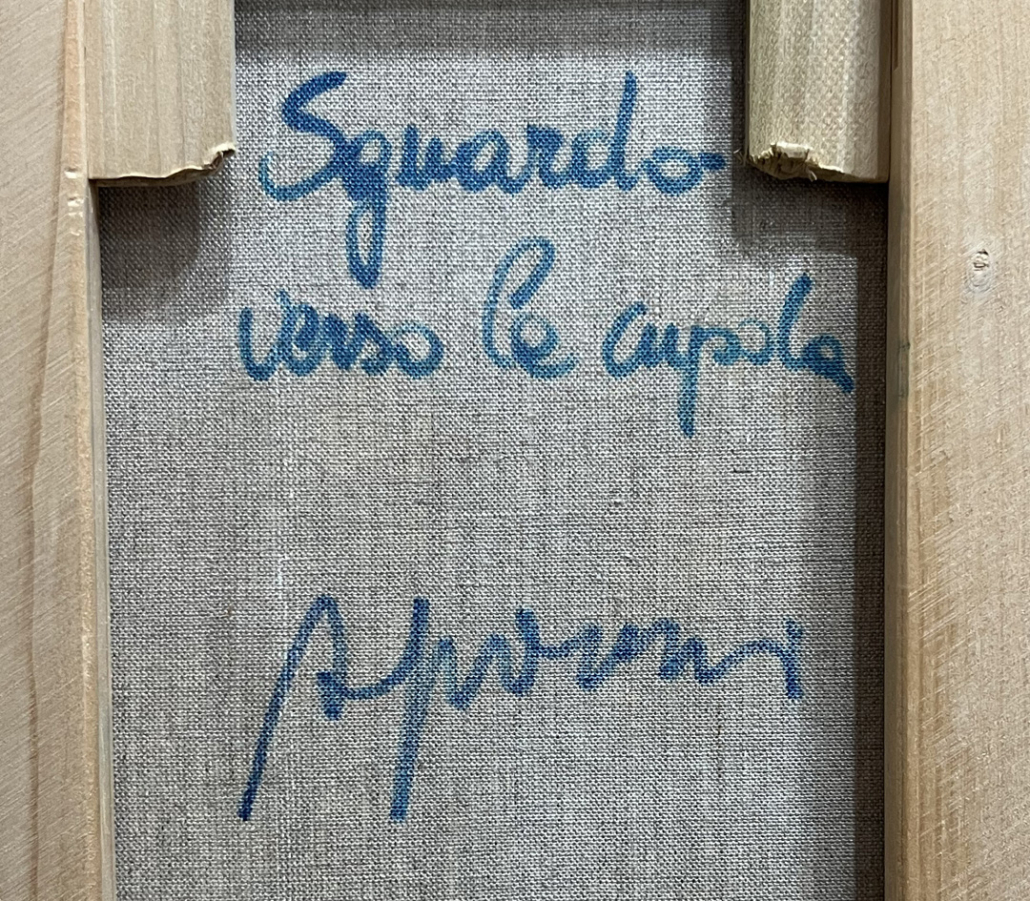 Sguardo
verso la cupola